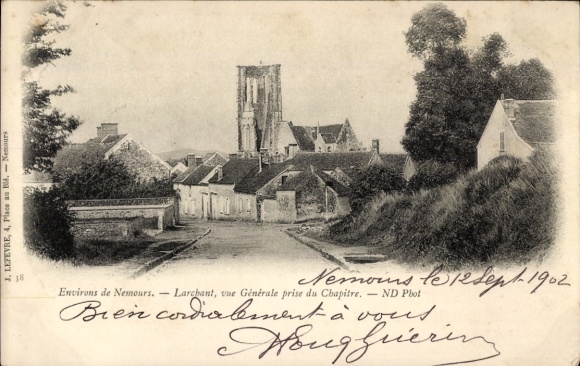 J. LEFEVRE, 4, Place au Blé. — Nemours
38
Environs de Nemours. — Larchant, vue Générale prise du Chapitre. — ND Phot
Nemours le 12 Sept 1902
Bien cordialement à vous
Guérin